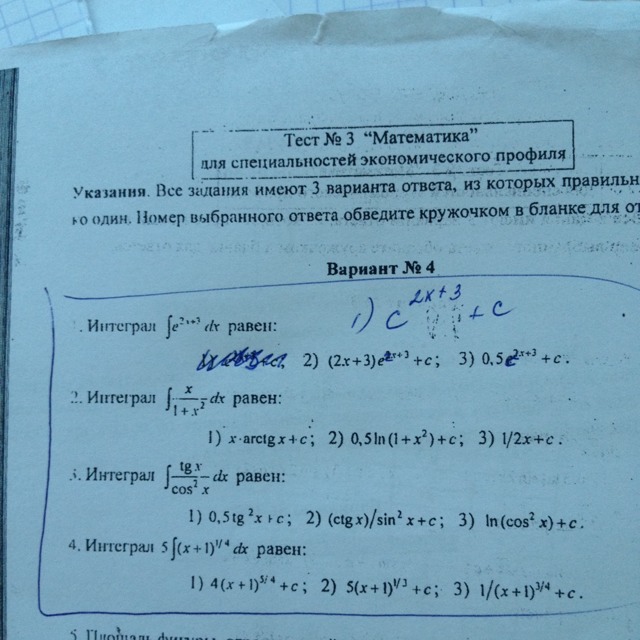 Тест № 3 “Математика”
для специальностей экономического профиля
Указания. Все задания имеют 3 варианта ответа, из которых правильн
ко один. Номер выбранного ответа обведите кружочком в бланке для от
Вариант № 4
1) e^{2x+3} + c
1. Интеграл ∫e^{2x+3} dx равен:
2) (2x+3)e^{2x+3} + c; 3) 0,5e^{2x+3} + c.
2. Интеграл ∫ x/(1+x²) dx равен:
1) x·arctgx+c; 2) 0,5ln(1+x²)+c; 3) 1/2x+c.
3. Интеграл ∫ tg x/cos² x dx равен:
1) 0,5tg²x+c; 2) (ctgx)/sin²x+c; 3) ln(cos²x)+c.
4. Интеграл 5∫(x+1)^{1/4} dx равен:
1) 4(x+1)^{5/4}+c; 2) 5(x+1)^{1/3}+c; 3) 1/(x+1)^{3/4}+c.
5. Площадь фигуры,